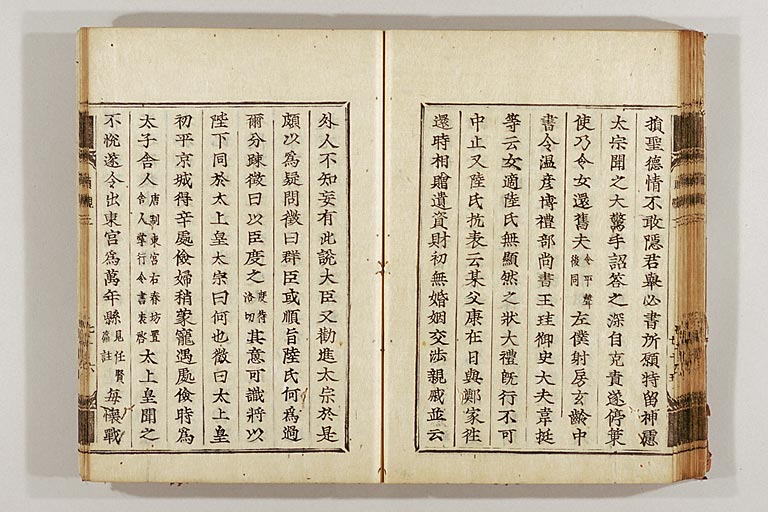 損聖德情不敢隱君舉必書所願特留神慮
太宗聞之大驚手詔答之深自克責遂停策
使乃令女還舊夫令平聲後同左僕射房玄齡中
書令溫彦博禮部尚書王珪御史大夫韋挺
等云女適陸氏無顯然之狀大禮既行不可
中止又陸氏抗表云某父康在日與鄭家徃
還時相贈遺資財初無婚姻交渉親戚並云
外人不知妄有此說大臣又勸進太宗於是
頗以爲疑問徵曰群臣或順旨陸氏何爲過
爾分踈徵曰以臣度之度待洛切其意可識將以
陛下同於太上皇太宗曰何也徵曰太上皇
初平京城得辛處儉婦稍蒙寵遇處儉時爲
太子舍人唐制東宮右春坊置舍人掌行令書表啓太上皇聞之
不悅遂令出東宮爲萬年縣見任賢篇註每懷戰